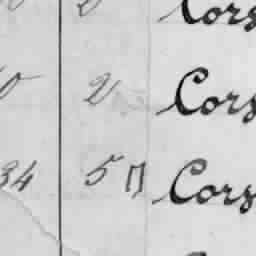 2 Cors
0 2 Cors
34 5 Cors